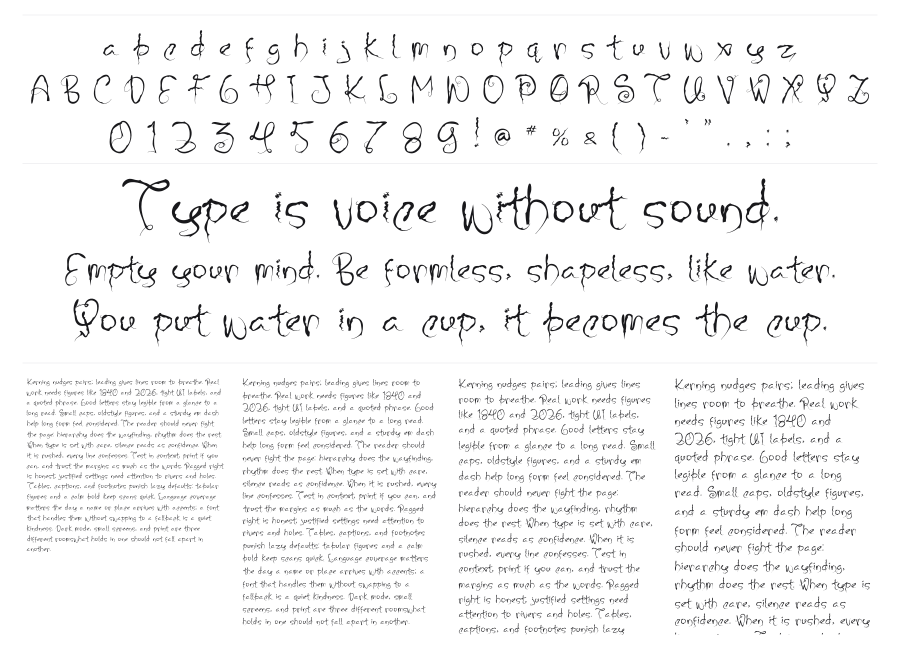 a b c d e f g h i j k l m n o p q r s t u v w x y z
A B C D E F G H I J K L M N O P Q R S T U V W X Y Z
0 1 2 3 4 5 6 7 8 9 ! @ # % & ( ) - ' " . , : ;
Type is voice without sound.
Empty your mind. Be formless, shapeless, like water.
You put water in a cup, it becomes the cup.
Kerning nudges pairs; leading gives lines room to breathe. Real
work needs figures like 1840 and 2026, tight UI labels, and
a quoted phrase. Good letters stay legible from a glance to a
long read. Small caps, oldstyle figures, and a sturdy em dash
help long form feel considered. The reader should never fight
the page; hierarchy does the wayfinding, rhythm does the rest.
When type is set with care, silence reads as confidence. When
it is rushed, every line confesses. Test in context, print if you
can, and trust the margins as much as the words. Ragged right
is honest; justified settings need attention to rivers and holes.
Tables, captions, and footnotes punish lazy defaults; tabular
figures and a calm bold keep scans quick. Language coverage
matters the day a name or place arrives with accents; a font
that handles them without swapping to a fallback is a quiet
kindness. Dark mode, small screens, and print are three
different rooms;what holds in one should not fall apart in
another.
Kerning nudges pairs; leading gives lines room to
breathe. Real work needs figures like 1840 and
2026, tight UI labels, and a quoted phrase. Good
letters stay legible from a glance to a long read.
Small caps, oldstyle figures, and a sturdy em dash
help long form feel considered. The reader should
never fight the page; hierarchy does the wayfinding,
rhythm does the rest. When type is set with care,
silence reads as confidence. When it is rushed, every
line confesses. Test in context, print if you can, and
trust the margins as much as the words. Ragged
right is honest; justified settings need attention to
rivers and holes. Tables, captions, and footnotes
punish lazy defaults; tabular figures and a calm
bold keep scans quick. Language coverage matters
the day a name or place arrives with accents; a
font that handles them without swapping to a
fallback is a quiet kindness. Dark mode, small
screens, and print are three different rooms;what
holds in one should not fall apart in another.
Kerning nudges pairs; leading gives lines
room to breathe. Real work needs figures
like 1840 and 2026, tight UI labels,
and a quoted phrase. Good letters stay
legible from a glance to a long read. Small
caps, oldstyle figures, and a sturdy em
dash help long form feel considered. The
reader should never fight the page;
hierarchy does the wayfinding, rhythm
does the rest. When type is set with care,
silence reads as confidence. When it is
rushed, every line confesses. Test in
context, print if you can, and trust the
margins as much as the words. Ragged
right is honest; justified settings need
attention to rivers and holes. Tables,
captions, and footnotes punish lazy
Kerning nudges pairs; leading gives
lines room to breathe. Real work
needs figures like 1840 and
2026, tight UI labels, and a
quoted phrase. Good letters stay
legible from a glance to a long
read. Small caps, oldstyle figures,
and a sturdy em dash help long
form feel considered. The reader
should never fight the page;
hierarchy does the wayfinding,
rhythm does the rest. When type is
set with care, silence reads as
confidence. When it is rushed, every